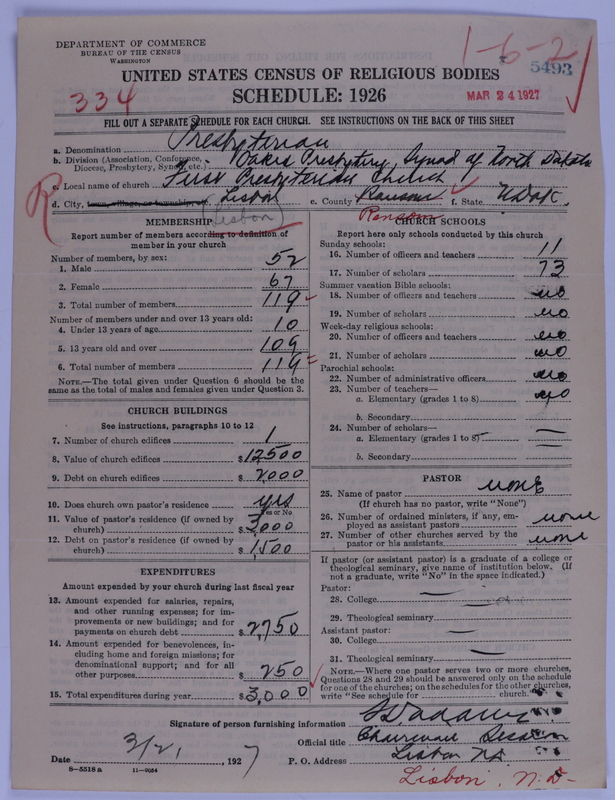 DEPARTMENT OF COMMERCE
BUREAU OF THE CENSUS
WASHINGTON
1-6-2
5493
UNITED STATES CENSUS OF RELIGIOUS BODIES
334
SCHEDULE: 1926
MAR 24 1927
FILL OUT A SEPARATE SCHEDULE FOR EACH CHURCH. SEE INSTRUCTIONS ON THE BACK OF THIS SHEET
a. Denomination Presbyterian
b. Division (Association, Conference, Diocese, Presbytery, Synod, etc.) Oakes Presbytery, Synod of North Dakota
R c. Local name of church First Presbyterian Church
d. City, town, village, or township, of Lisbon e. County Ransom f. State N Dak.
Lisbon Ransom
MEMBERSHIP
Report number of members according to definition of
member in your church
Number of members, by sex:
1. Male 52
2. Female 67
3. Total number of members 119
Number of members under and over 13 years old:
4. Under 13 years of age 10
5. 13 years old and over 109
6. Total number of members 119
NOTE.—The total given under Question 6 should be the
same as the total of males and females given under Question 3.
CHURCH BUILDINGS
See instructions, paragraphs 10 to 12
7. Number of church edifices 1
8. Value of church edifices $12500
9. Debt on church edifices $2000
10. Does church own pastor's residence yes
Yes or No
11. Value of pastor's residence (if owned by
church) $3,000
12. Debt on pastor's residence (if owned by
church) $1,500
EXPENDITURES
Amount expended by your church during last fiscal year
13. Amount expended for salaries, repairs,
and other running expenses; for im-
provements or new buildings; and for
payments on church debt $2,750
14. Amount expended for benevolences, in-
cluding home and foreign missions; for
denominational support; and for all
other purposes $250
15. Total expenditures during year $3,000
CHURCH SCHOOLS
Report here only schools conducted by this church
Sunday schools:
16. Number of officers and teachers 11
17. Number of scholars 73
Summer vacation Bible schools:
18. Number of officers and teachers no
19. Number of scholars no
Week-day religious schools:
20. Number of officers and teachers no
21. Number of scholars no
Parochial schools:
22. Number of administrative officers no
23. Number of teachers—
a. Elementary (grades 1 to 8) no
b. Secondary
24. Number of scholars—
a. Elementary (grades 1 to 8) —
b. Secondary —
PASTOR
25. Name of pastor none
(If church has no pastor, write "None")
26. Number of ordained ministers, if any, em-
ployed as assistant pastors none
27. Number of other churches served by the
pastor or his assistants none
If pastor (or assistant pastor) is a graduate of a college or
theological seminary, give name of institution below. (If
not a graduate, write "No" in the space indicated.)
Pastor:
28. College —
29. Theological seminary —
Assistant pastor:
30. College —
31. Theological seminary —
NOTE.—Where one pastor serves two or more churches,
Questions 28 and 29 should be answered only on the schedule
for one of the churches; on the schedules for the other churches,
write "See schedule for church."
Signature of person furnishing information Adams
Official title Chairman Session
Date 3/21, 1927 P. O. Address Lisbon ND
8—5518 a 11—9054
Lisbon, N.D.